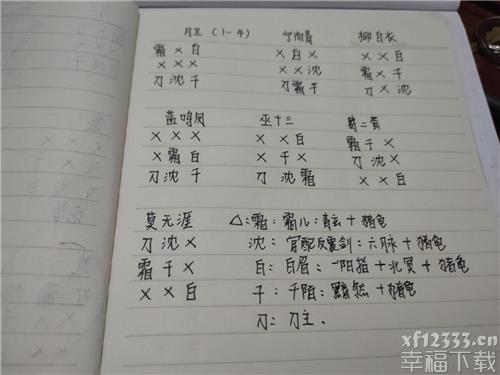 月卫(1-4) 宁尚青 柳白衣
霜 × 白 × 白 × × × 白
× × × × × 沈 霜 × 千
刀 沈 千 刀 霜 千 刀 × 沈
蓝鸣凤 巫十三 葛二蛋
× × × × × 白 霜 千 ×
× 霜 白 × 千 × 刀 沈 ×
刀 沈 千 刀 沈 霜 × × 白
莫无涯 △:霜:霜儿:青云+猪龟
刀 沈 × 沈: 反震剑:六脉+猪龟
霜 千 × 白:白眉:一阳指+北冥+猪龟
× × 白 千:千陌:黯然+猪龟
刀:刀主.
xf12333.cn
幸福下载